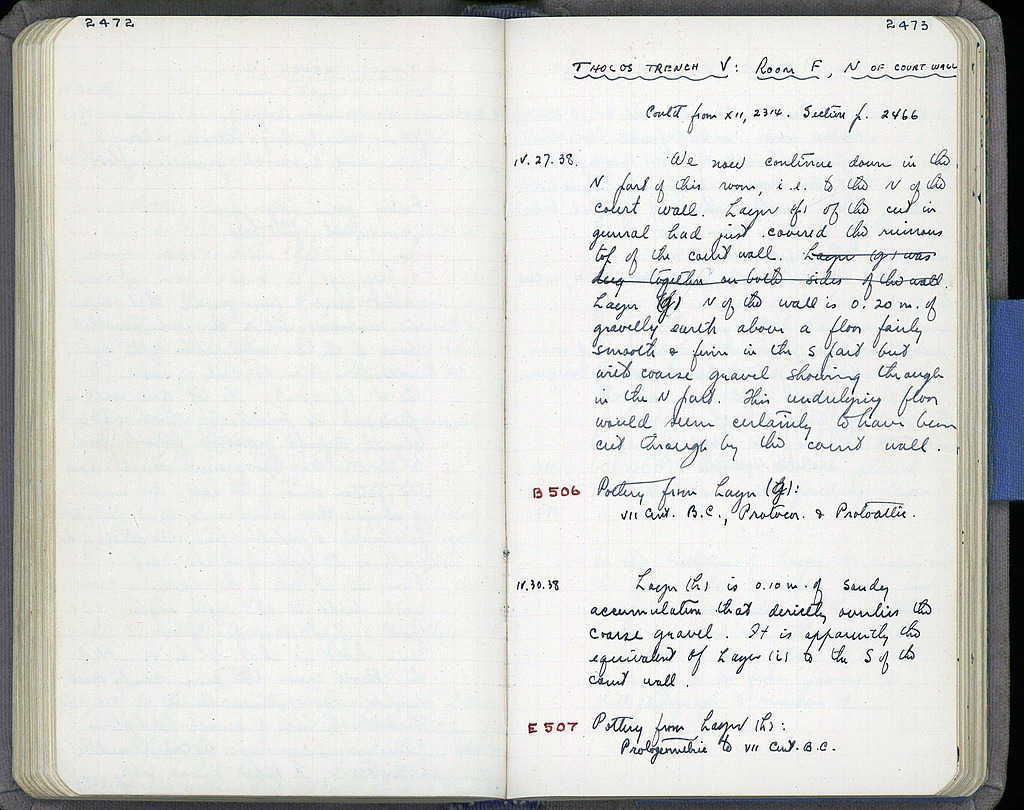 2472
2473
THOLOS TRENCH V: ROOM F, N OF COURT WALL
Cont'd from XII, 2314. Section p. 2466
IV.27.38. We now continue down in the
N part of this room, i.e. to the N of the
court wall. Layer (f) of the cut in
general had just covered the ruinous
top of the court wall. Layer (g) was
dug together on both sides of the wall.
Layer (g) N of the wall is 0.20 m. of
gravelly earth above a floor fairly
smooth & firm in the S part but
with coarse gravel showing through
in the N part. This underlying floor
would seem certainly to have been
cut through by the court wall.
B 506 Pottery from Layer (g):
VII Cent. B.C., Protocor. & Protoattic.
IV.30.38 Layer (h) is 0.10 m. of sandy
accumulation that directly overlies the
coarse gravel. It is apparently the
equivalent of Layer (i) to the S of the
court wall.
E 507 Pottery from Layer (h):
Protogeometric to VII Cent. B.C.